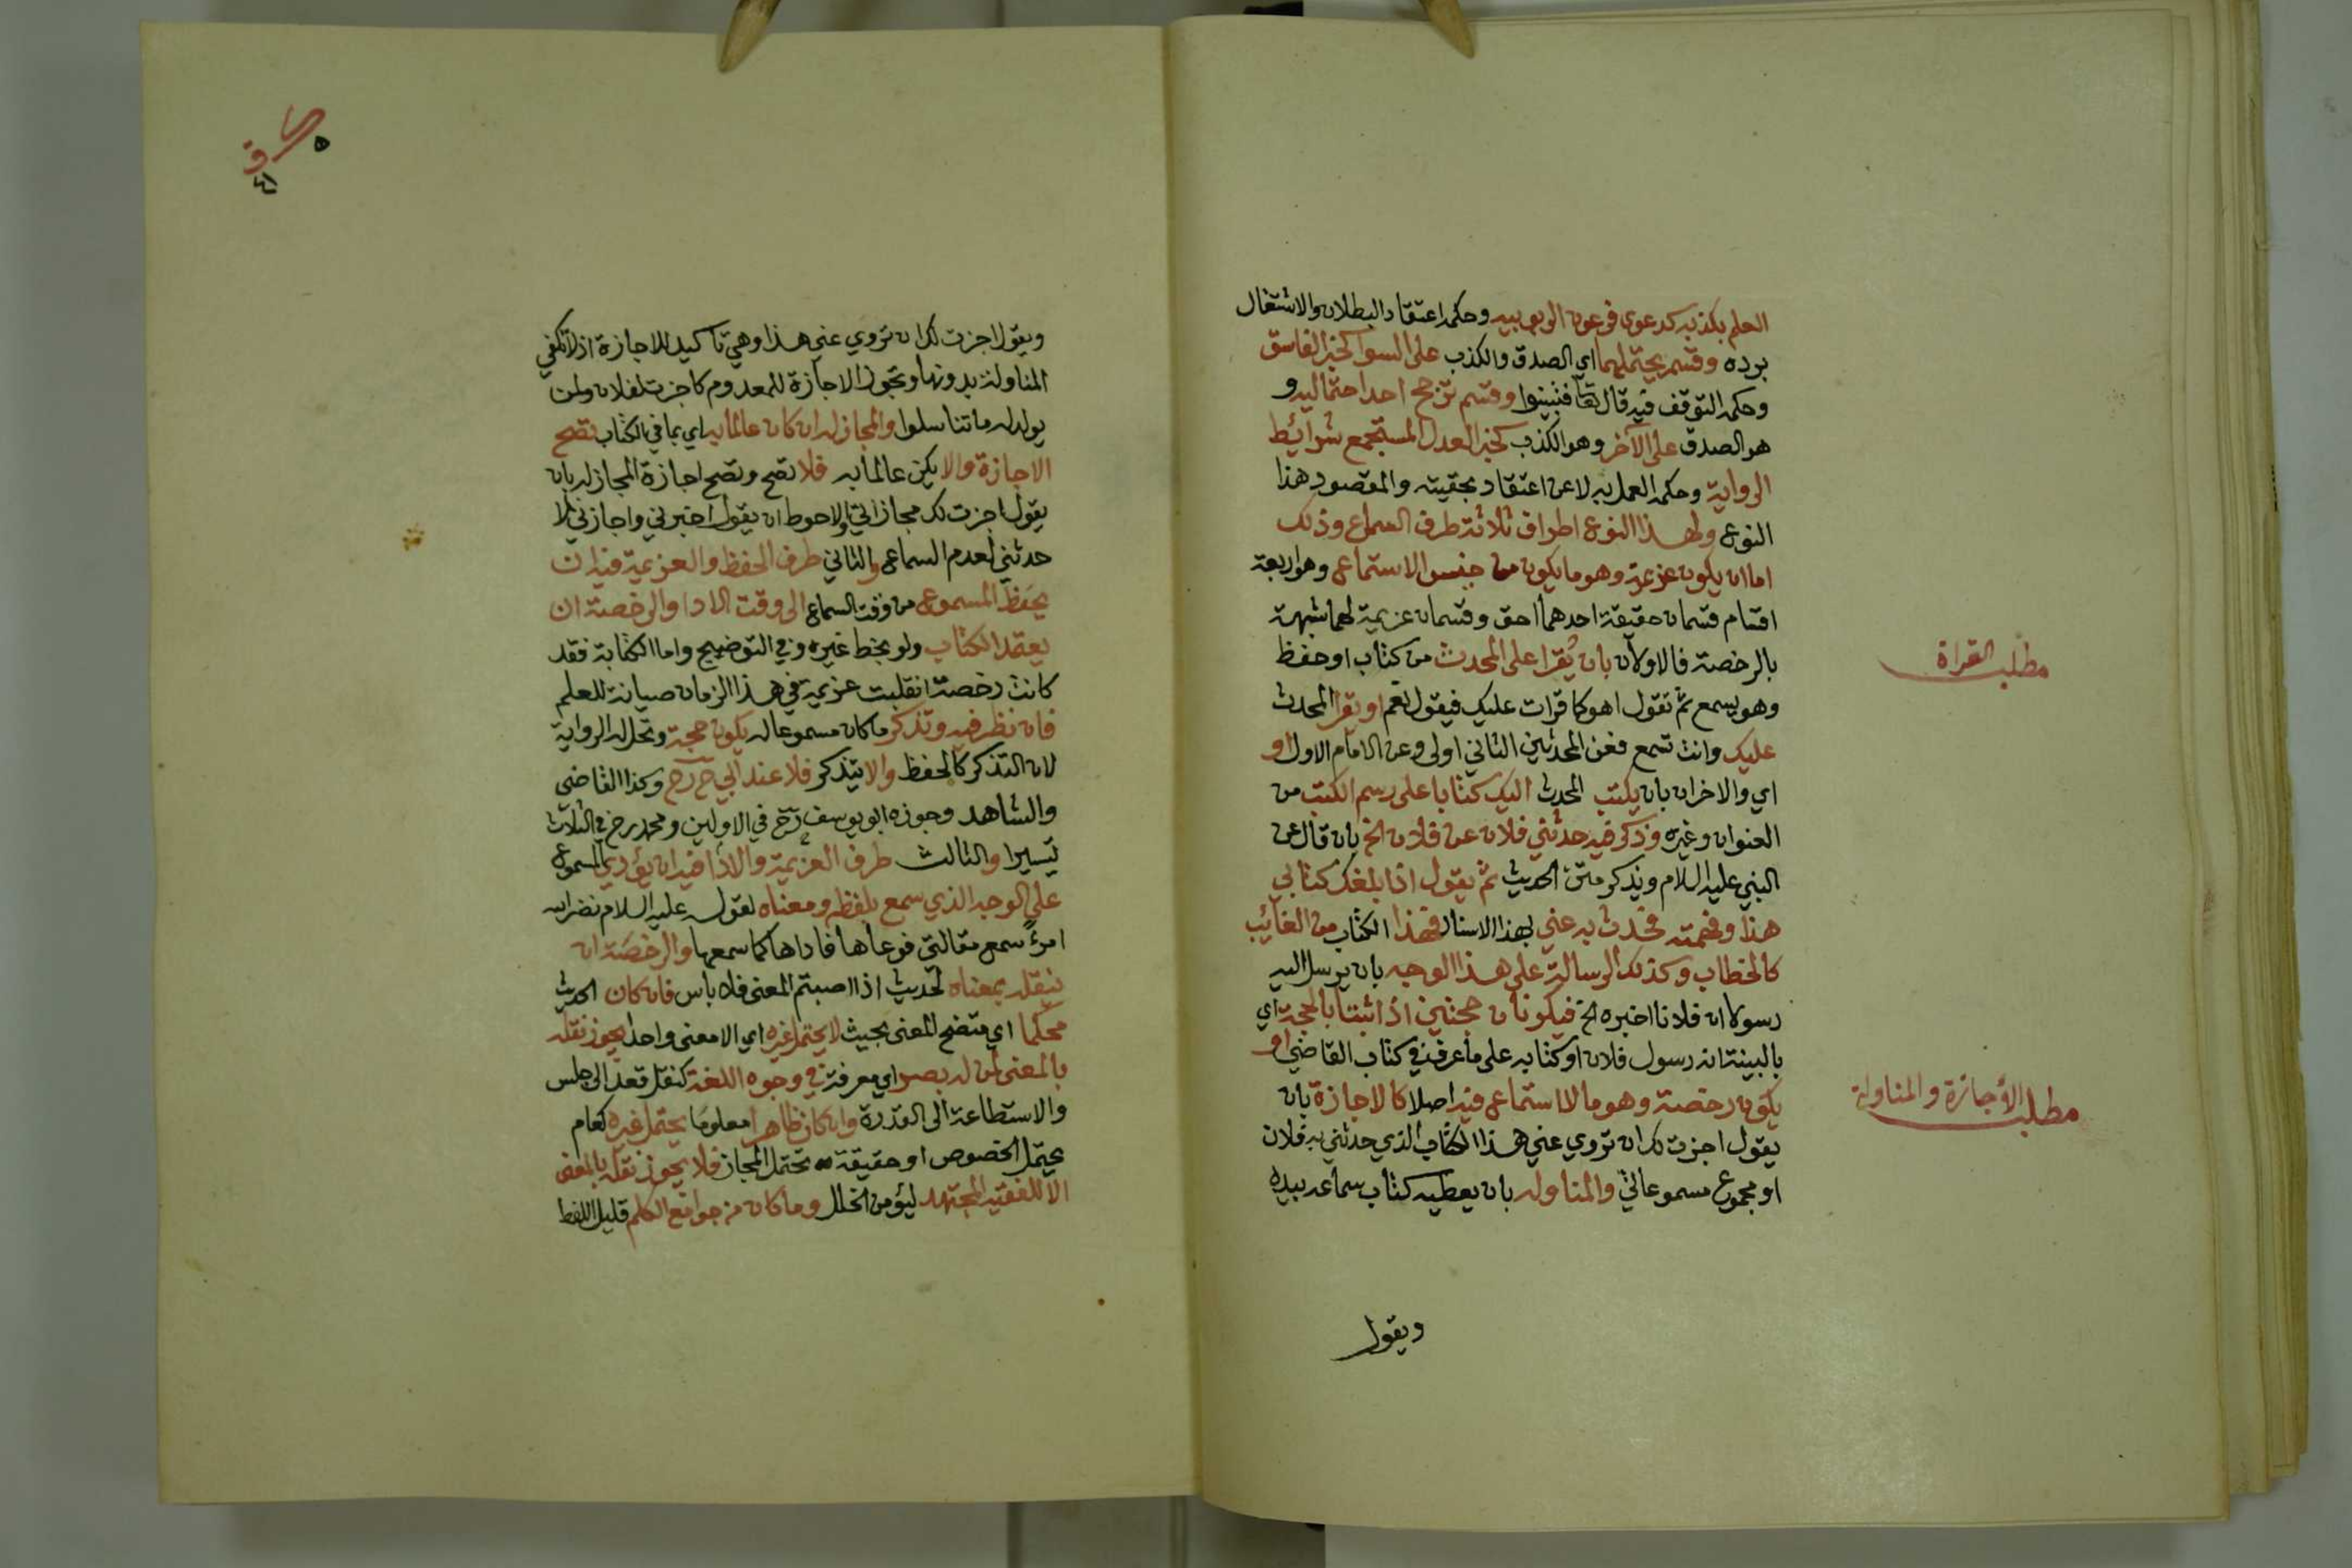 العلم بكذبه كدعوى فرعون الربوبيه وحكمه اعتقاد البطلان والاشتغال
برده وقسم يحتملهما اي الصدق والكذب على السوا كخبر الفاسق
وحكمه التوقف فيه قال تعا فتبينوا وقسم ترجح احد احتماليه و
هو الصدق على الآخر وهو الكذب كخبر العدل المستجمع شرائط
الرواية وحكمه العمل به لا عن اعتقاد بحقيته والمقصود هذا
النوع ولهذا النوع اطراف ثلاثة طرف السماع وذلك
اما ان يكون عزيمة وهو ما يكون من جنس الاستماع وهو اربعة
اقسام قسمان حقيقة احدهما احق وقسمان عزيمة لهما شبهة
بالرخصة فالاولان بان تقرا على المحدث من كتاب او حفظ
وهو يسمع ثم تقول اهو كما قرات عليك فيقول نعم او يقرا المحدث
عليك وانت تسمع فعن المحدثين الثاني اولى وعن الامام الاول او
اي والاخران بان يكتب المحدث اليك كتابا على رسم الكتب من
العنوان وغيره وذكر فيه حدثني فلان عن فلان الخ بان قال عن
النبي عليه السلام ويذكر متن الحديث ثم يقول اذا بلغك كتابي
هذا وفهمته فحدث به عني بهذا الاسناد فهذا الكتاب من الغائب
كالخطاب وكذلك الرسالة على هذا الوجه بان يرسل اليه
رسولا ان فلانا اخبره الخ فيكونان حجتين اذا ثبتا بالحجة اي
بالبينة انه رسول فلان او كتابه على ما عرف في كتاب القاضي او
يكون رخصة وهو ما لا استماع فيه اصلا كالاجازة بان
يقول اجزت لك ان تروي عني هذا الكتاب الذي حدثني به فلان
او مجموع مسموعاتي والمناوله بان يعطيه كتاب سماعه بيده
ويقول
مطلب القراة
مطلب الاجازة والمناولة
٤١
ويقول اجزت لك ان تروي عني هذا وهي تاكيد للاجازة اذ لا تكفي
المناولة بدونها وتجوز الاجازة للمعدوم كاجزت لفلان ولمن
يولد له ما تناسلوا والمجاز له ان كان عالما به اي بما في الكتاب تصح
الاجازة والا يكن عالما به فلا تصح وتصح اجازة المجاز له بان
يقول اجزت لك مجازاتي والاحوط ان يقول اخبرني واجازني لا
حدثني لعدم السماع والثاني طرف الحفظ والعزيمة فيه ان
يحفظ المسموع من وقت السماع الى وقت الادا والرخصة ان
يعتمد الكتاب ولو بخط غيره وفي التوضيح واما الكتابة فقد
كانت رخصة انقلبت عزيمة في هذا الزمان صيانة للعلم
فان نظر فيه وتذكر ما كان مسموعا له يكون حجة وتحل له الرواية
لان التذكر كالحفظ والا يتذكر فلا عند ابي ح رح وكذا القاضي
والشاهد وجوزه ابو يوسف رح في الاولين ومحمد رح في الثلاث
تيسيرا والثالث طرف العزيمة والادا فيه ان يؤدي المسموع
على الوجه الذي سمع بلفظه ومعناه لقوله عليه السلام نضر الله
امرءً سمع مقالتي فوعاها فاداها كما سمعها والرخصة ان
ينقله بمعناه لحديث اذا اصبتم المعنى فلا باس فان كان الحديث
محكما اي متضح المعنى بحيث لا يحتمل غيره اي الا معنى واحدا يجوز نقله
بالمعنى لمن له بصر اي معرفة في وجوه اللغة كنقل قعد الى جلس
والاستطاعة الى القدرة وان كان ظاهرا معلوما يحتمل غيره كعام
يحتمل الخصوص او حقيقة تحتمل المجاز فلا يجوز نقله بالمعنى
الا للفقيه المجتهد ليؤمن الخلل وما كان من جوامع الكلم قليل اللفظ